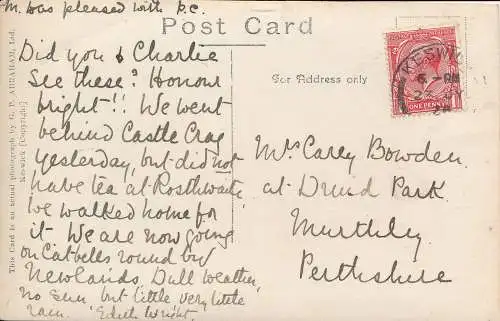 M. was pleased with p.c.
Post Card
Did you & Charlie
see these? Honour
bright!! We went
behind Castle Crag
yesterday, but did not
have tea at Rosthwaite
we walked home for
it. We are now going
on Catbells round by
Newlands. Dull weather,
no sun but little very little
rain. Edith Wright.
For Address only
Mrs Carey Bowden
at Druid Park
Murthly
Perthshire
This Card is an actual photograph by G. P. ABRAHAM, Ltd.
Keswick [Copyright]
KESWICK
6 - PM
ONE PENNY